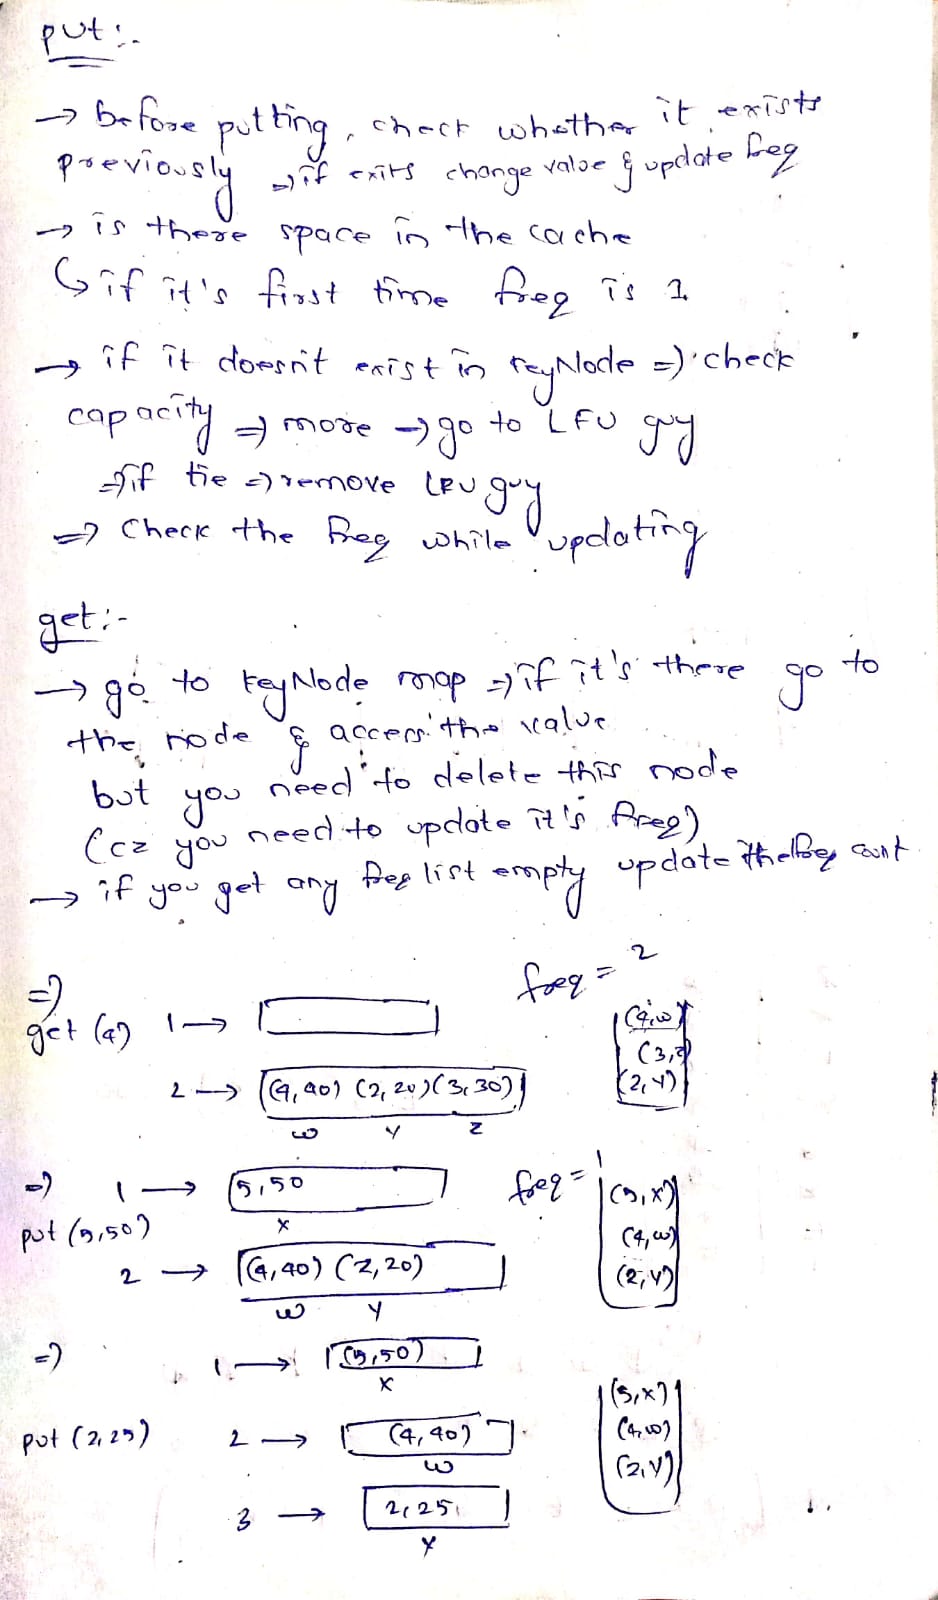 put :-
→ before putting, check whether it exists
previously ⇒ if exits change value & update freq
→ is there space in the cache
↳ if it's first time freq is 1
→ if it doesn't exist in keyNode ⇒ check
capacity ⇒ more → go to LFU guy
⇒ if tie ⇒ remove LRU guy
⇒ Check the freq while updating
get :-
→ go to keyNode map ⇒ if it's there go to
the node & access the value
but you need to delete this node
(cz you need to update it's freq)
→ if you get any freq list empty update the lfreq count
⇒ freq = 2
get (4) 1 →
(4,w)
(3,z)
(2,y)
2 → (4,40) (2,20) (3,30)
w y z
⇒ 1 → 5,50 freq = 1
put (5,50) x
(5,x)
(4,w)
(2,y)
2 → (4,40) (2,20)
w y
⇒ 1 → (5,50)
x
(5,x)
(4,w)
(2,y)
put (2,25) 2 → (4,40)
w
3 → 2,25
y